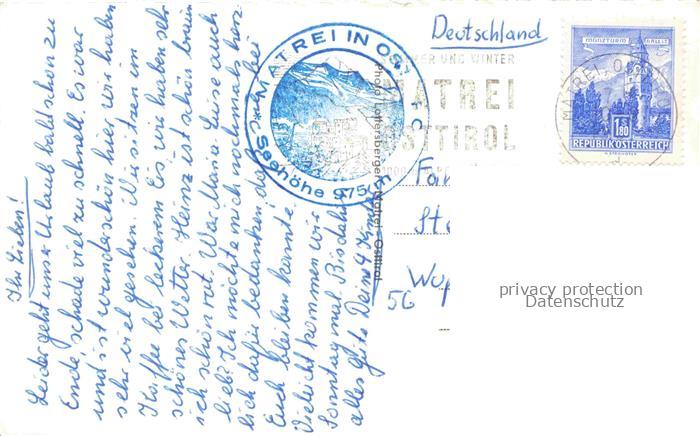 Ihr Lieben!
Leider geht unser Urlaub bald schon zu
Ende, schade viel zu schnell. Es war
und ist wunderschön hier, wir haben
sehr viel gesehen. Wir sitzen im
Kaffee bei leckerem Eis, wir haben sehr
schönes Wetter. Heinz ist schön braun
ich schön rot. War Maria Luise auch
lieb? Ich möchte mich nochmals herz
lich dafür bedanken, daß sie bei
Euch bleiben konnte.
Vieleicht kommen wir
Sonntag mal. Bis dahin
alles gute Deine
MATREI IN OST
Seehöhe 975 m
Deutschland
ER UND WINTER
MATREI
OSTTIROL
Matrei - Osttirol
MÜNZTURM HALL
1.80
REPUBLIK ÖSTERREICH
MATREI
Fa
St
Wup
56
privacy protection
Datenschutz